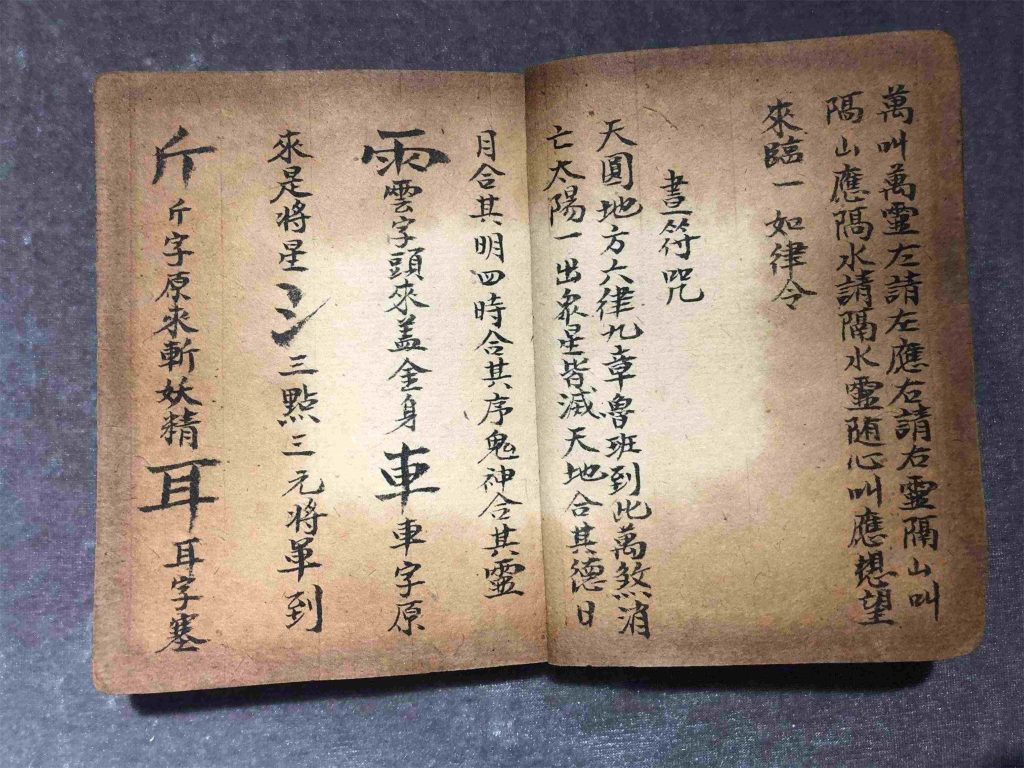 萬叫萬靈左請左應右請右靈隔山叫
隔山應隔水請隔水靈随心叫應想望
來臨一如律令
晝符咒
天圓地方六律九章魯班到此萬煞消
亡太陽一出衆星皆滅天地合其德日
月合其明四時合其序鬼神合其靈
雨雲字頭來盖金身車車字原
來是将星氵三點三元將軍到
斤斤字原來斬妖精耳耳字塞